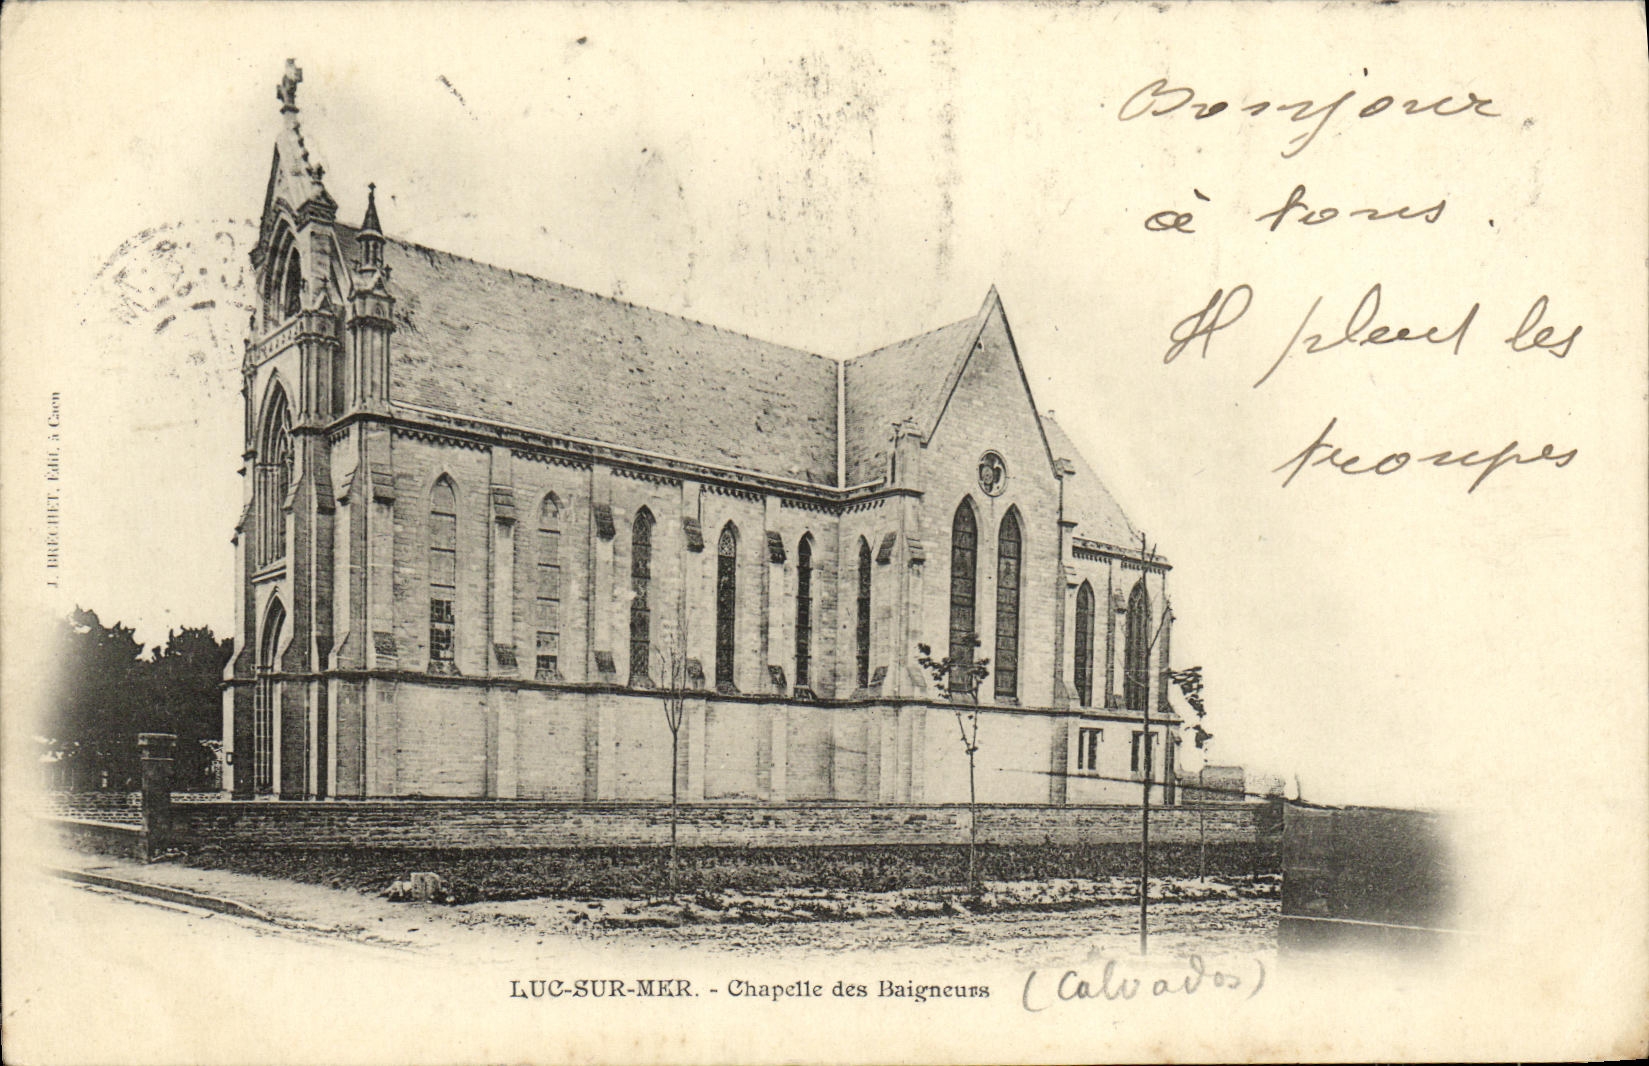 Bonjour
à tous.
Il pleut les
troupes
J. BRECHET, Edit. à Caen
LUC-SUR-MER. - Chapelle des Baigneurs (Calvados)